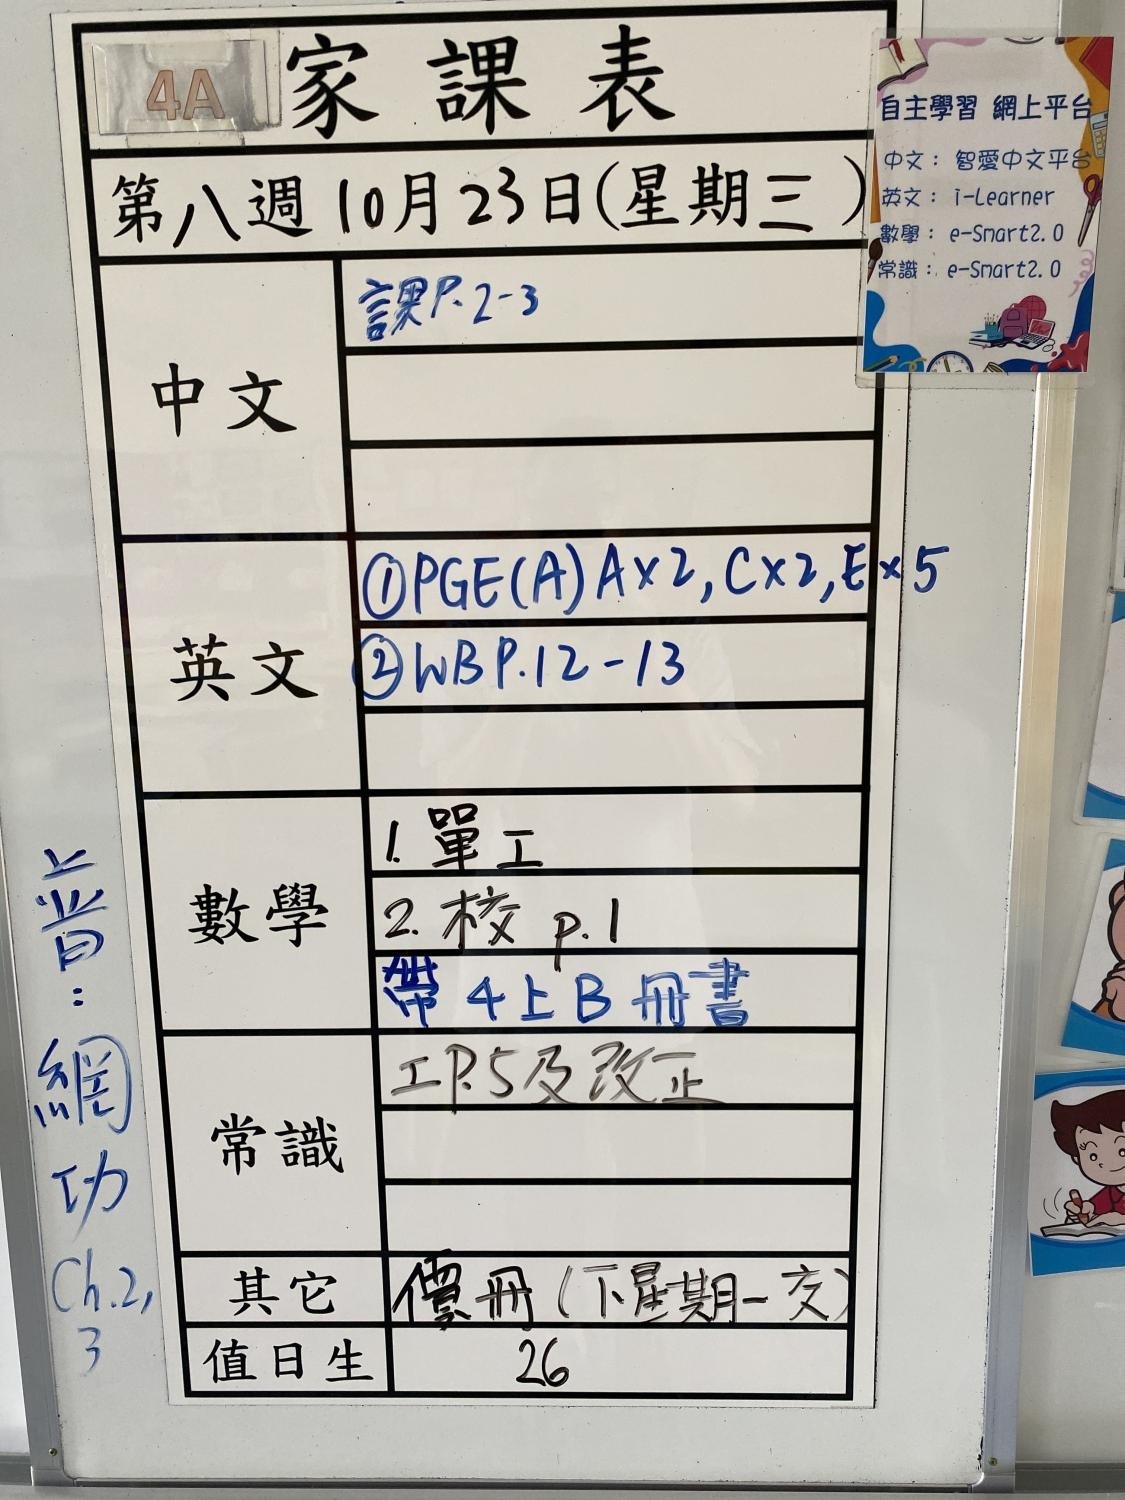 4A
家課表
第八週10月23日(星期三)
中文
課P.2-3
英文
①PGE(A)A×2,C×2,E×5
②WB P.12-13
數學
1. 單工
2. 校 p.1
帶4上B冊書
常識
工P.5及改正
其它
價冊(下星期一交)
值日生
26
普:網功
Ch.2,
3
自主學習 網上平台
中文:智愛中文平台
英文:i-Learner
數學:e-Smart2.0
常識:e-Smart2.0